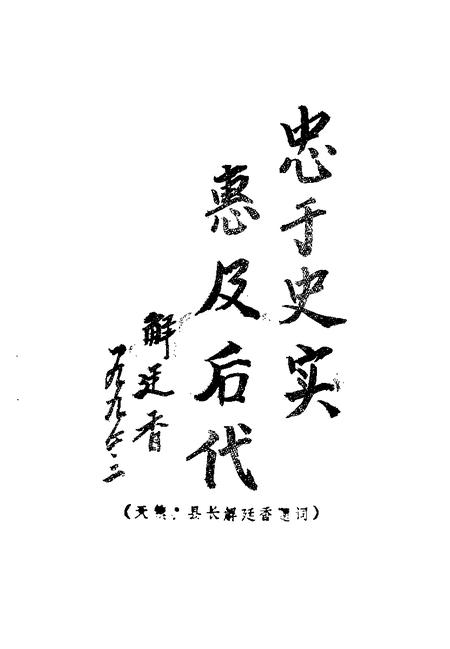 忠于史实
惠及后代
解廷香
一九九
县长解廷香题词)